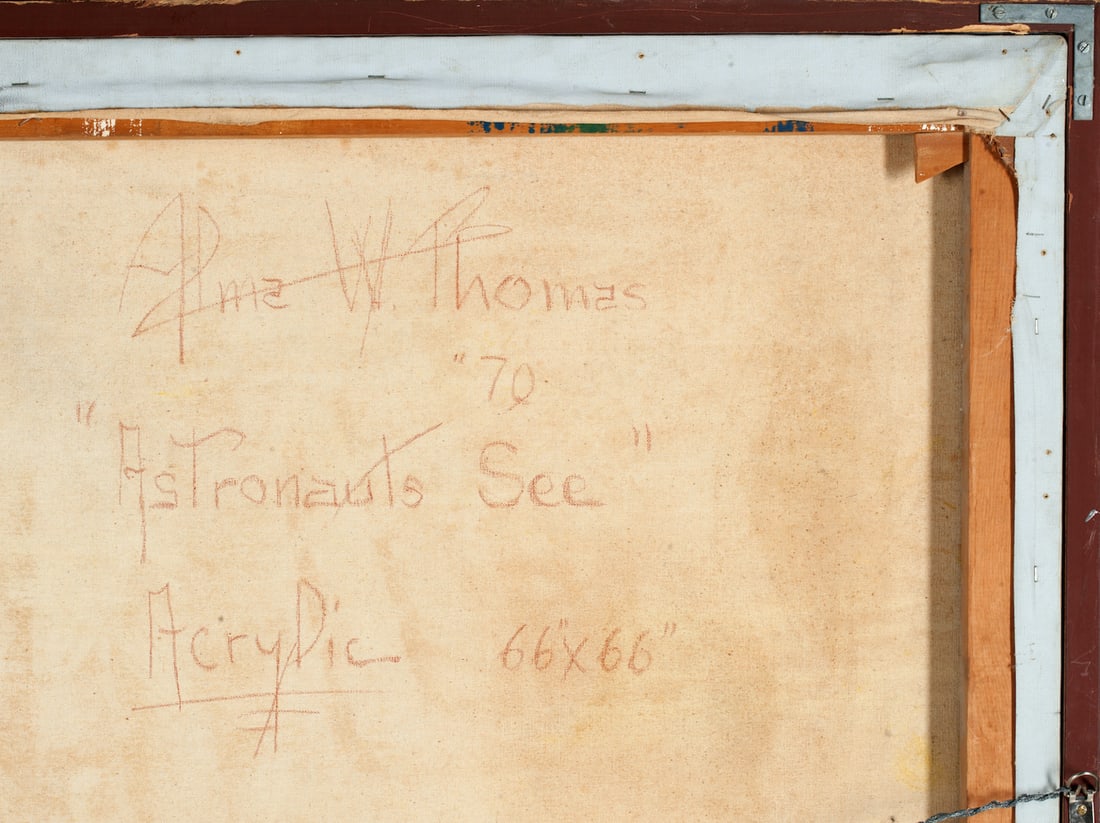 Alma W. Thomas
"70
"Astronauts See"
Acrylic 66"x66"